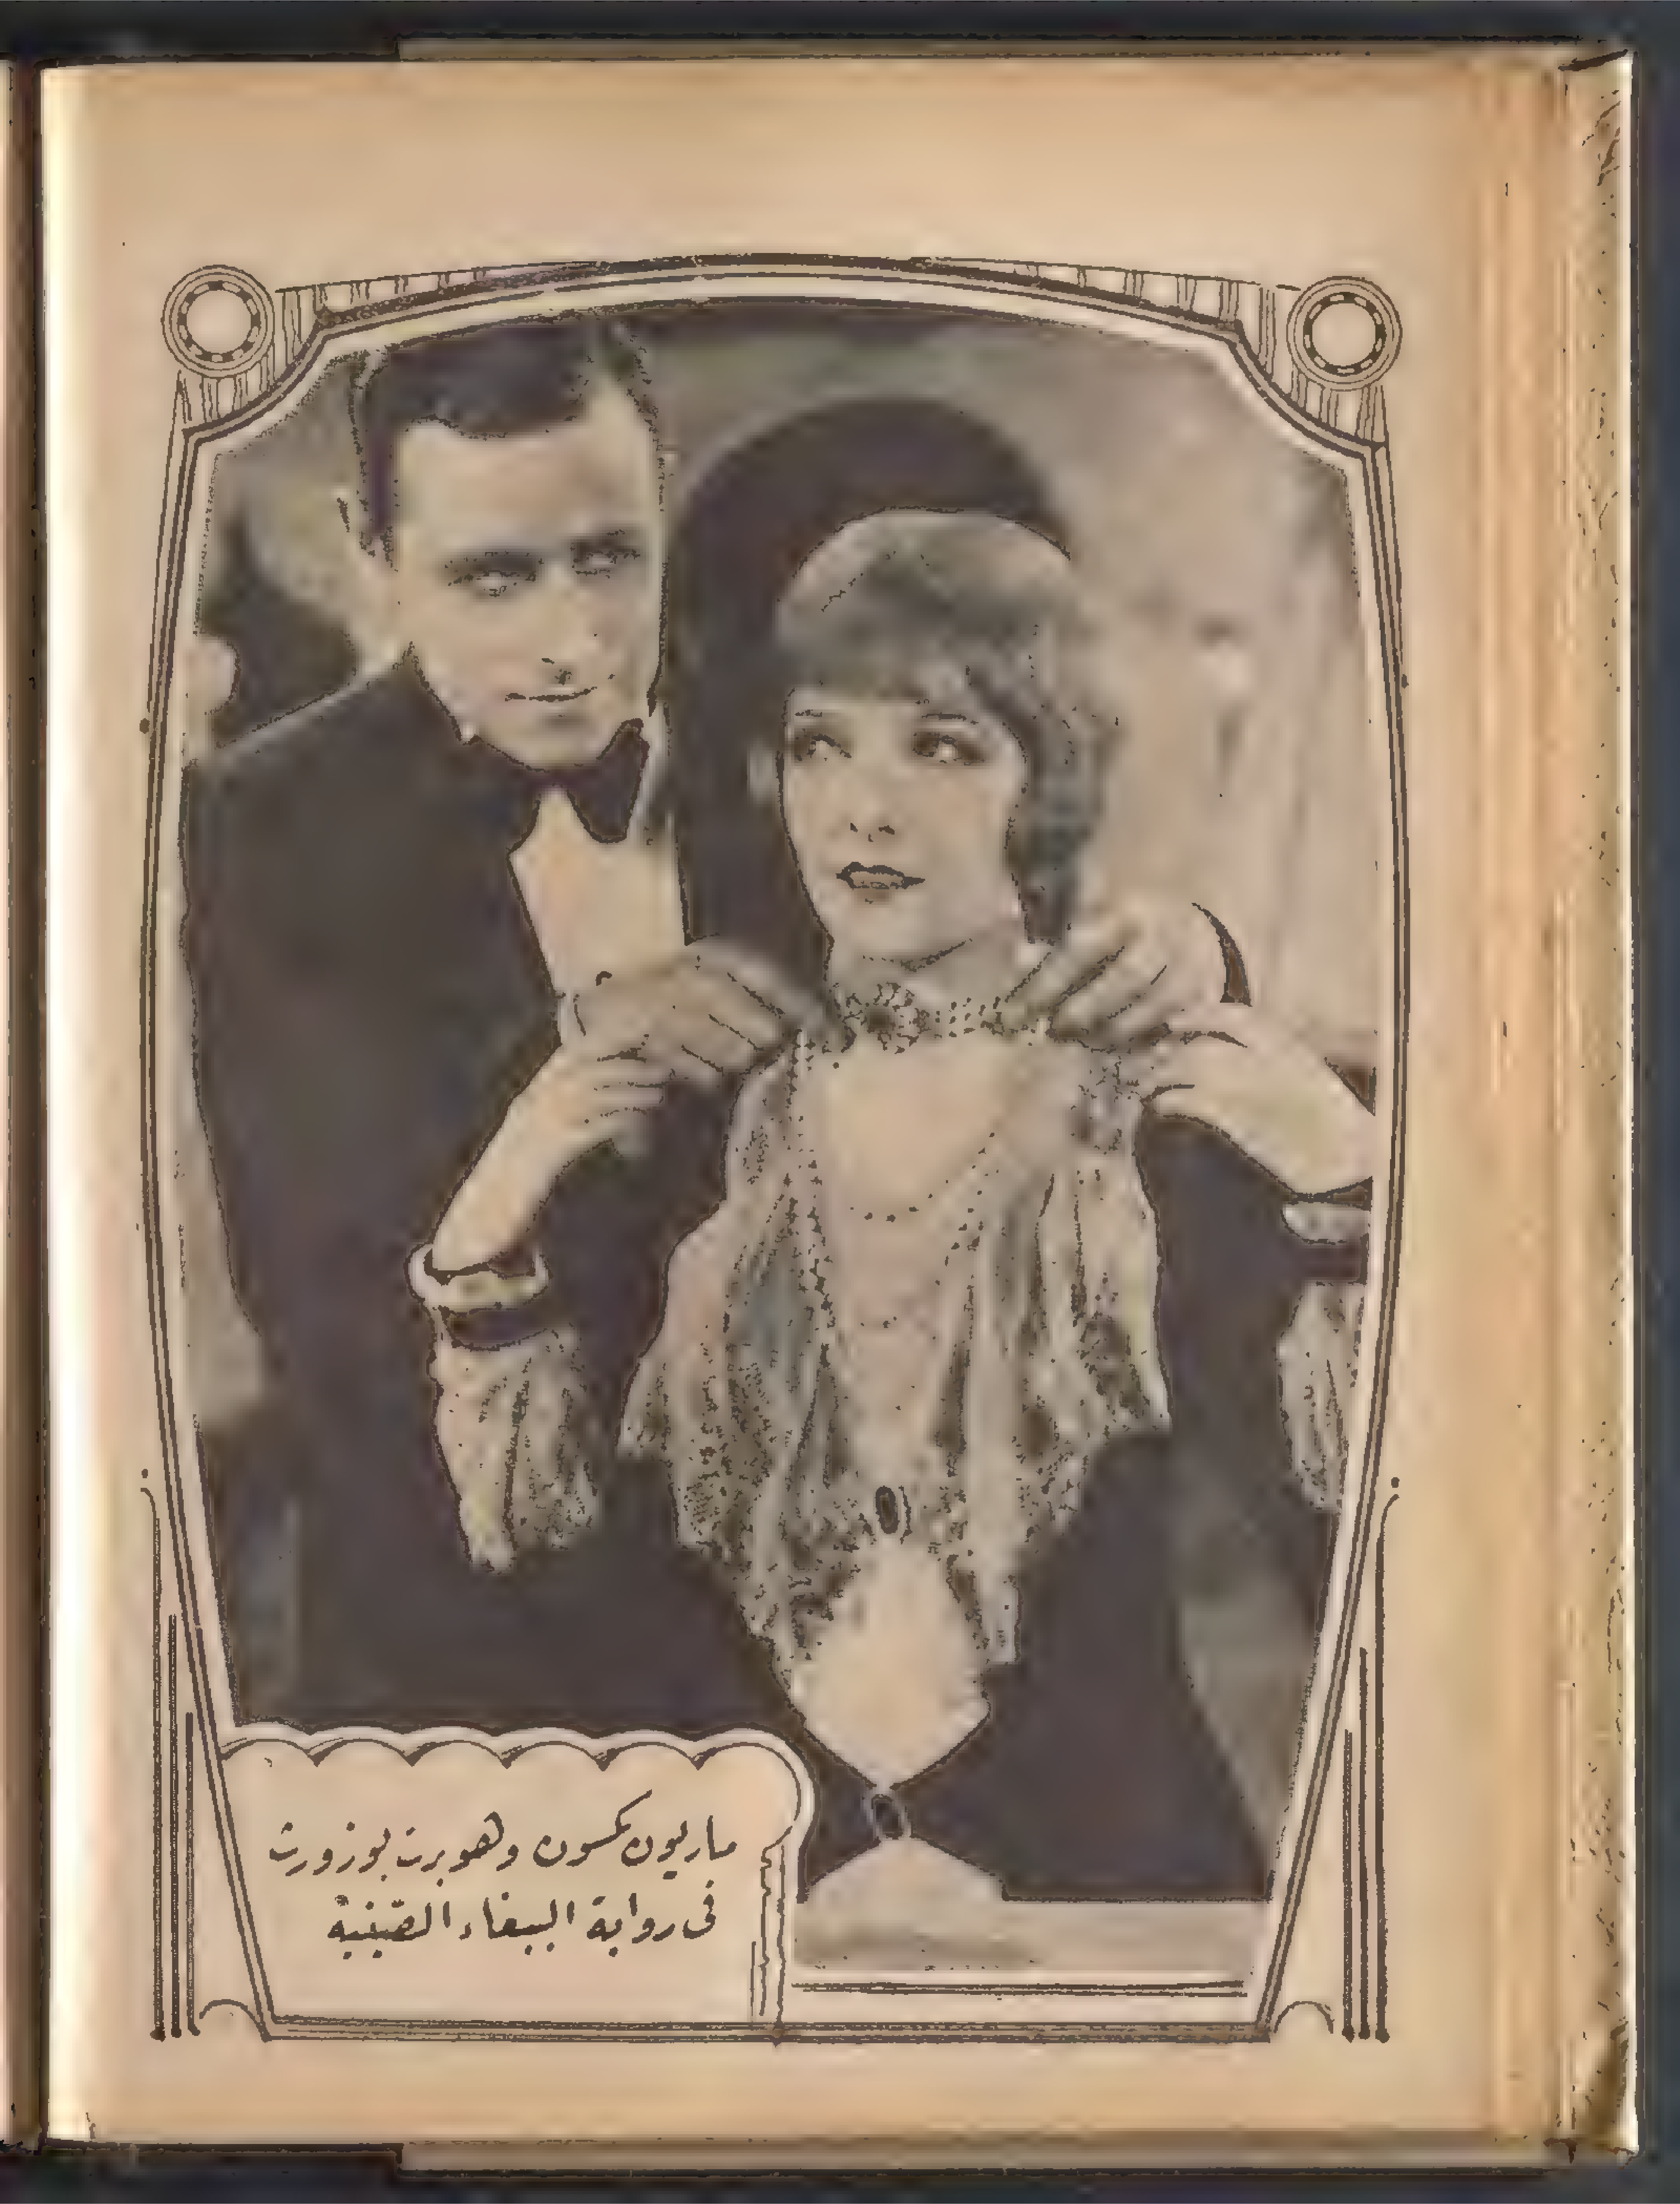 ماريون نكسون وهوبرت بوزورث
فى رواية الببغاء الصينية